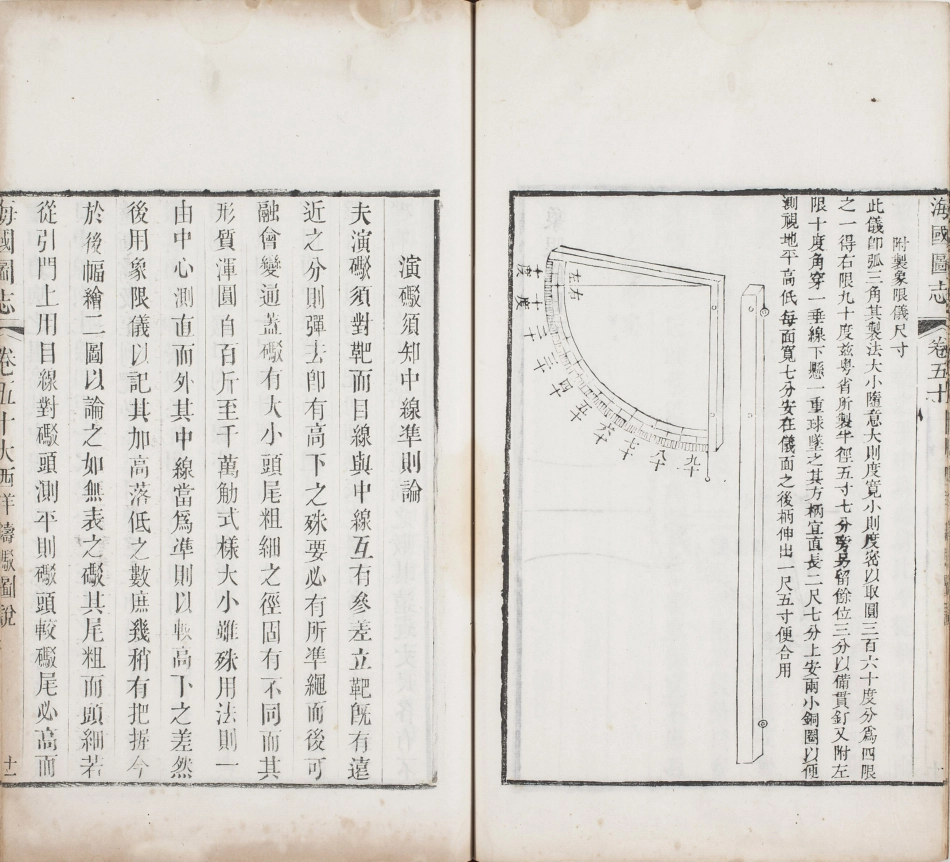 海國圖志
卷五十
附製象限儀尺寸
此儀卽弧三角其製法大小隨意大則度寛小則度密以取圓三百六十度分爲四限
之一得右限九十度兹粵省所製半徑五寸七分旁另留餘位三分以備貫釘又附左
限十度角穿一垂線下懸一重球墜之其方柄宜直長二尺七分上安兩小銅圈以便
測視地平高低每面寛七分安在儀面之後柄伸出一尺五寸便合用
右
左
十度
十度
二十
三十
四十
五十
六十
七十
八十
九十
演礮須知中線準則論
夫演礮須對靶而目線與中線互有參差立靶旣有遠
近之分則彈去卽有高下之殊要必有所準繩而後可
融會變通蓋礮有大小頭尾粗細之徑固有不同而其
形質渾圓自百斤至千萬觔式樣大小雖殊用法則一
由中心測直而外其中線當爲準則以較高下之差然
後用象限儀以記其加高落低之數庶幾稍有把握今
於後幅繪二圖以論之如無表之礮其尾粗而頭細若
從引門上用目線對礮頭測平則礮頭較礮尾必高而
海國圖志
卷五十大西洋鑄礮圖說
十二